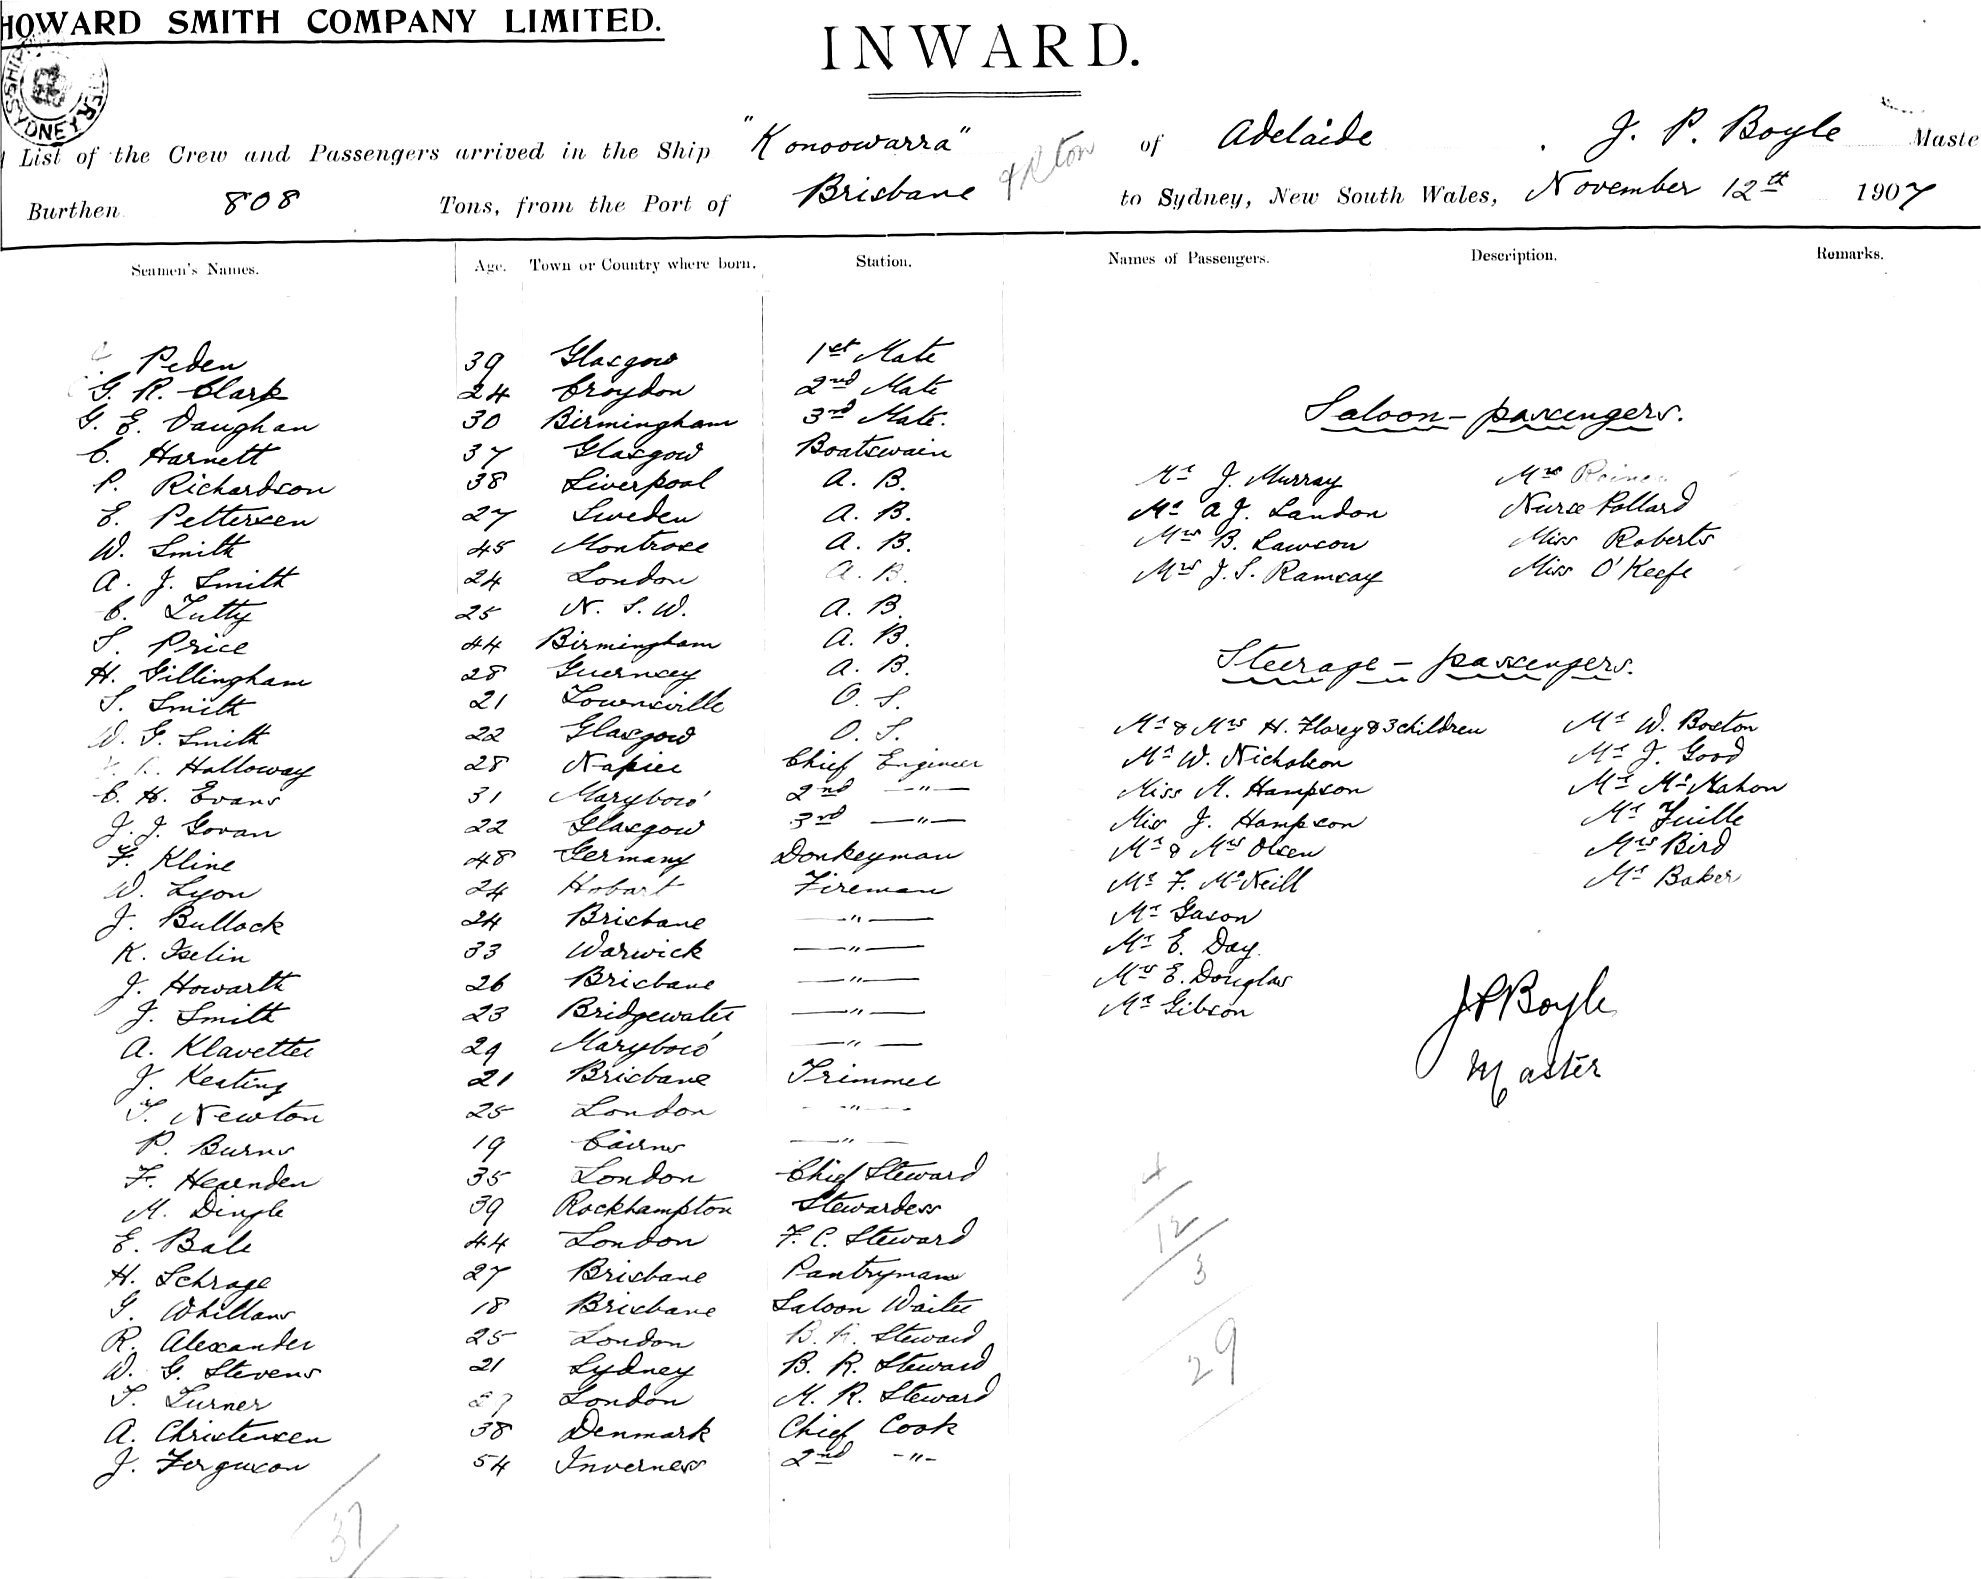 HOWARD SMITH COMPANY LIMITED.
INWARD.
SYDNEY
List of the Crew and Passengers arrived in the Ship "Konoowarra" of Adelaide, J. P. Boyle Maste
Burthen 808 Tons, from the Port of Brisbane to Sydney, New South Wales, November 12th 1907
Seamen's Names. Age. Town or Country where born. Station. Names of Passengers. Description. Remarks.
Peden 39 Glasgow 1st Mate
G. R. Clark 24 Croydon 2nd Mate
G. E. Vaughan 30 Birmingham 3rd Mate.
C. Harnett 37 Glasgow Boatswain
P. Richardson 38 Liverpool A. B.
E. Pettersen 27 Sweden A. B.
W. Smith 45 Montrose A. B.
A. J. Smith 24 London A. B.
C. Tutty 25 N. S. W. A. B.
S. Price 44 Birmingham A. B.
H. Gillingham 28 Guernsey A. B.
S. Smith 21 Townsville O. S.
W. G. Smith 22 Glasgow O. S.
Halloway 28 Napier Chief Engineer
C. H. Evans 31 Maryboro' 2nd —"—
J. J. Govan 22 Glasgow 3rd —"—
F. Kline 48 Germany Donkeyman
W. Lyon 24 Hobart Fireman
J. Bullock 24 Brisbane —"—
K. Iselin 33 Warwick —"—
J. Howarth 26 Brisbane —"—
J. Smith 23 Bridgewater —"—
A. Klavetter 29 Maryboro' —"—
J. Keating 21 Brisbane Trimmer
T. Newton 25 London —"—
P. Burns 19 Cairns —"—
F. Hearnden 35 London Chief Steward
M. Dingle 39 Rockhampton Stewardess
E. Bale 44 London F. C. Steward
H. Schrage 27 Brisbane Pantryman
G. Whillans 18 Brisbane Saloon Waiter
R. Alexander 25 London B. R. Steward
W. G. Stevens 21 Sydney B. R. Steward
T. Turner London M. R. Steward
A. Christensen 38 Denmark Chief Cook
J. Ferguson 54 Inverness 2nd -"-
37
Saloon - passengers.
Mr J. Murray Mrs
Mr A J. Landon Nurse Pollard
Mrs B. Lawson Miss Roberts
Mrs J. S. Ramsay Miss O'Keefe
Steerage - passengers.
Mr & Mrs H. Florey & 3 children Mr W. Boston
Mr W. Nicholson Mr J. Good
Miss M. Hampson Mr McMahon
Miss J. Hampson Mr
Mr & Mrs Olsen Mrs Bird
Mr F. McNeill Mr Baker
Mr Gason
Mr E. Day
Mrs E. Douglas
Mr Gibson
J P Boyle
Master
12
3
29